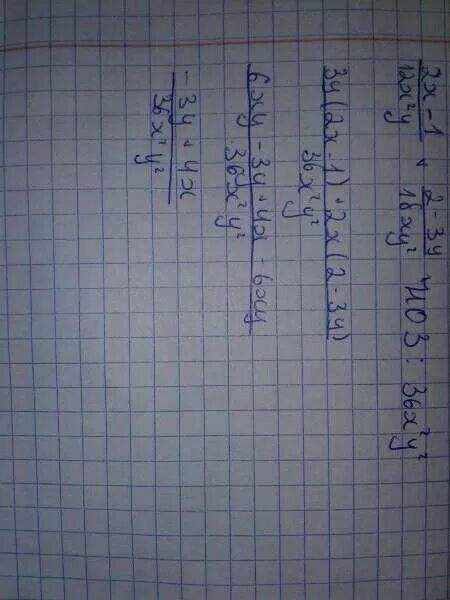 2x-1/12x²y + 2-3y/18xy² НОЗ: 36x²y²
3y(2x-1)+2x(2-3y)/36x²y²
6xy-3y+4x-6xy/36x²y²
-3y+4x/36x²y²